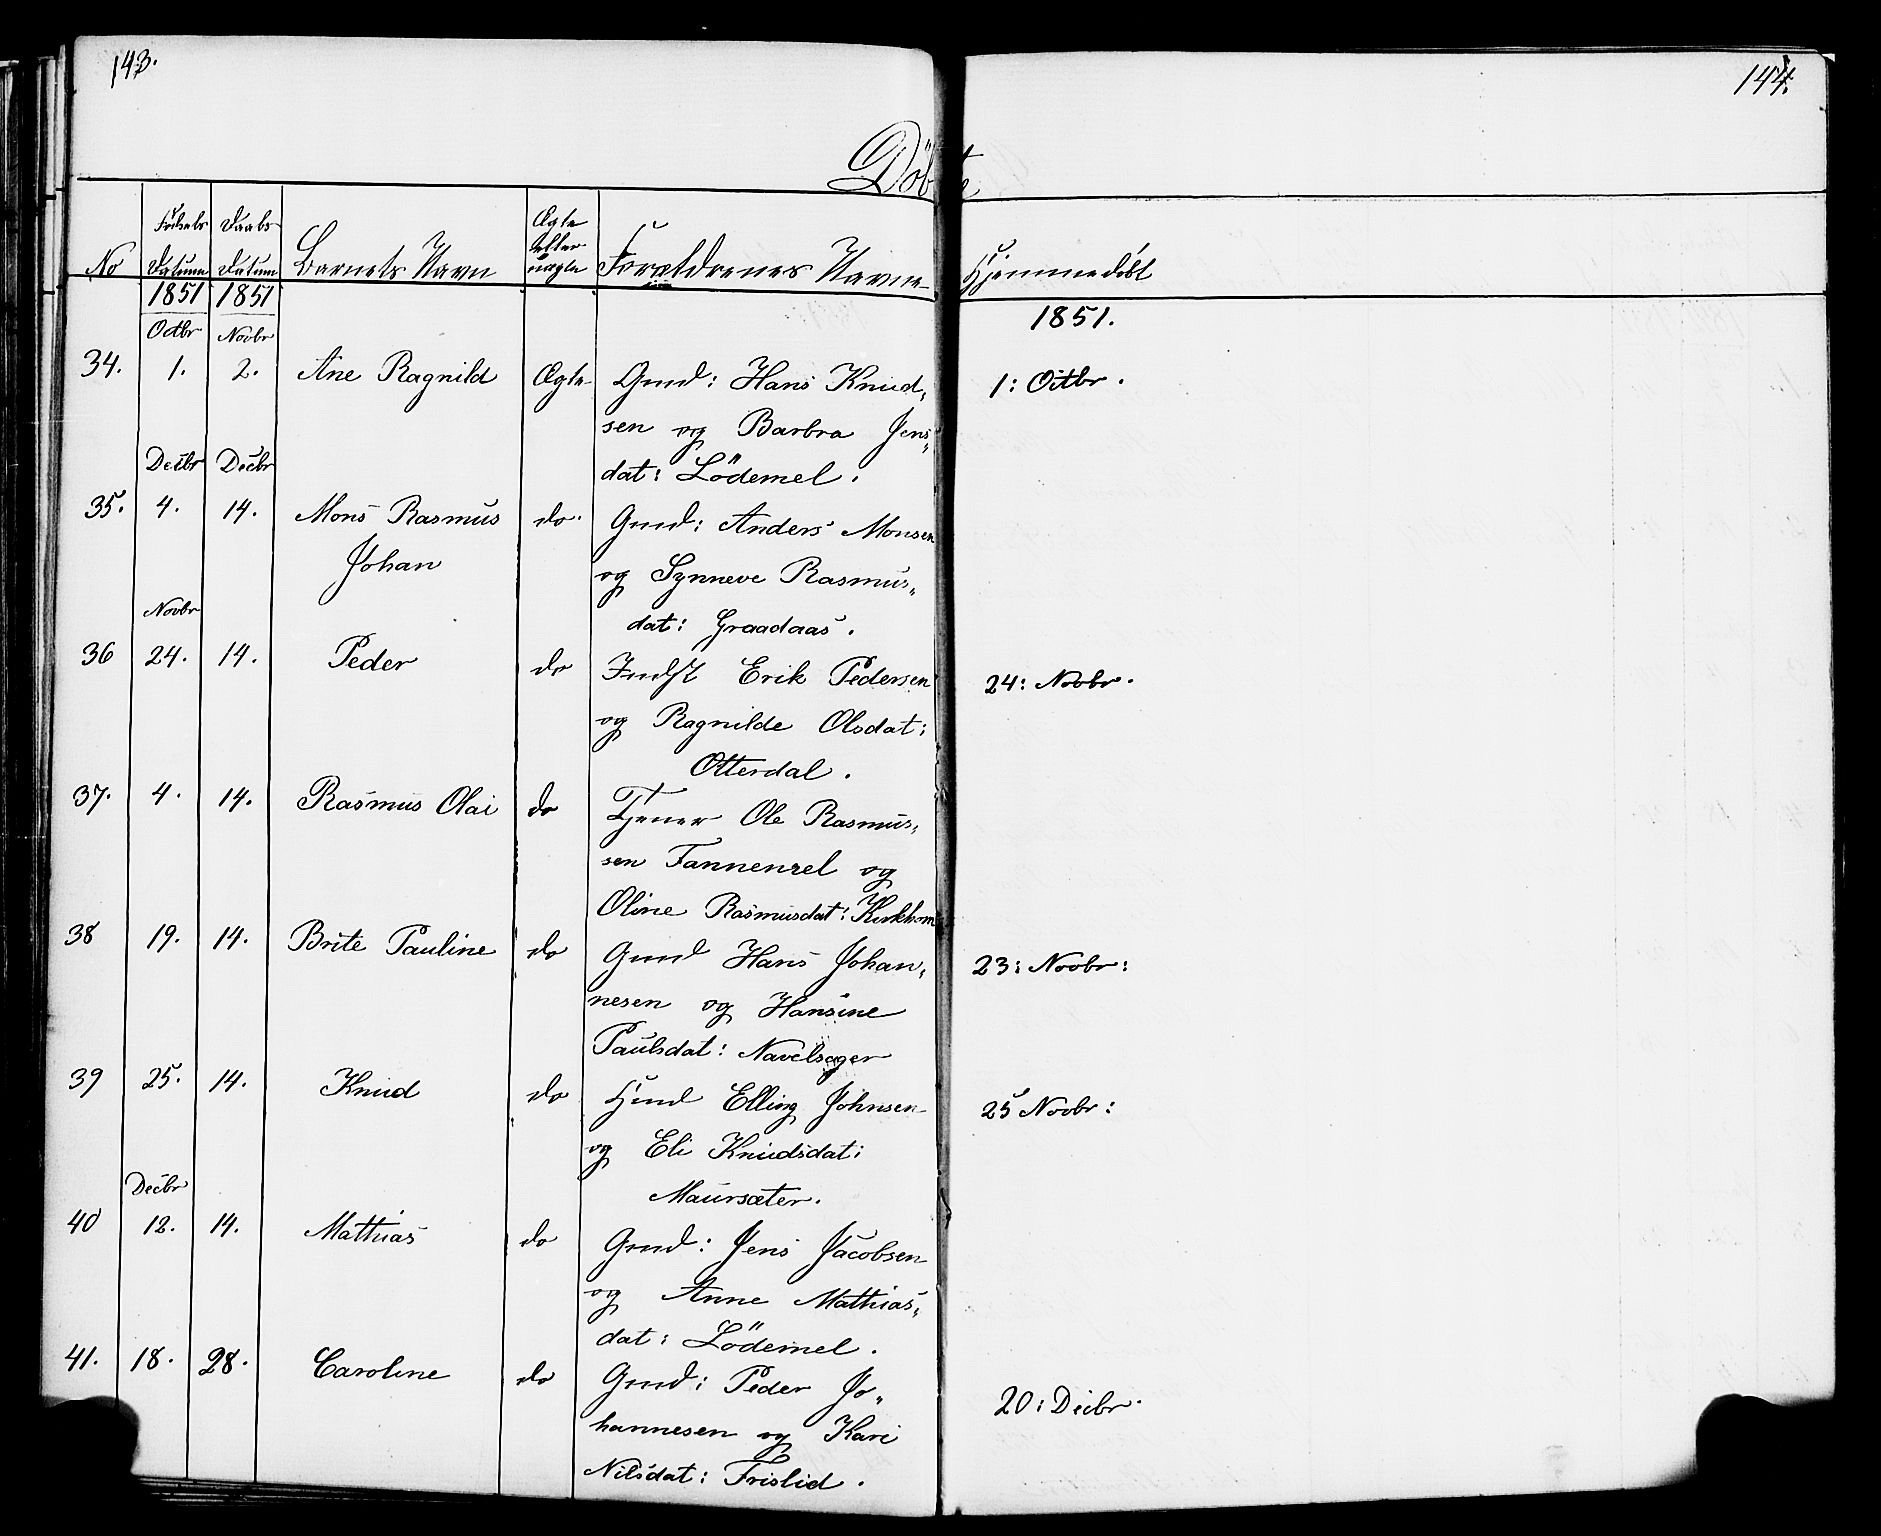 143.
144.
Döbte
No
Fødsels Datum
Daabs Datum
Barnets Navn
Ægte eller uægte
Forældrenes Navne
Hjemmedöbt
1851 1851 1851.
Octbr Novbr
34. 1. 2. Ane Ragnild Ægte Gmd: Hans Knud„ 1: Octbr.
sen og Barbra Jens„
Decbr Decbr dat: Lödemel.
35. 4. 14. Mons Rasmus do. Gmd: Anders Monsen
Johan og Synneve Rasmus„
Novbr dat: Graadaas.
36 24. 14. Peder do Indst Erik Pedersen 24: Novbr.
og Ragnilde Olsdat:
Otterdal.
37. 4. 14. Rasmus Olai do Tjener Ole Rasmus„
sen Tannenzel og
Oline Rasmusdat: Kirkhorn
38 19. 14. Brite Pauline do Gmd Hans Johan„ 23: Novbr:
nesen og Hansine
Paulsdat: Navelsager
39 25. 14. Knud do Hmd Elling Johnsen 25 Novbr:
og Eli Knudsdat:
Decbr Maursæter.
40 12. 14. Mathias do Gmd: Jens Jacobsen
og Anne Mathias„
dat: Lödemel.
41. 18. 28. Caroline do Gmd: Peder Jo„ 20: Decbr.
hannesen og Kari
Nilsdat: Frislid.